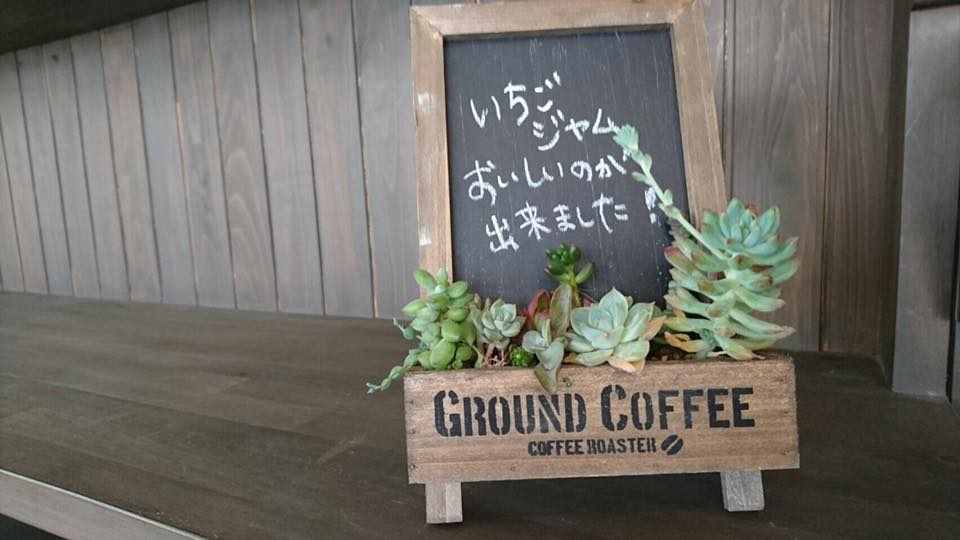 いちご
ジャム
おいしいのが
出来ました!
GROUND COFFEE
COFFEE ROASTER